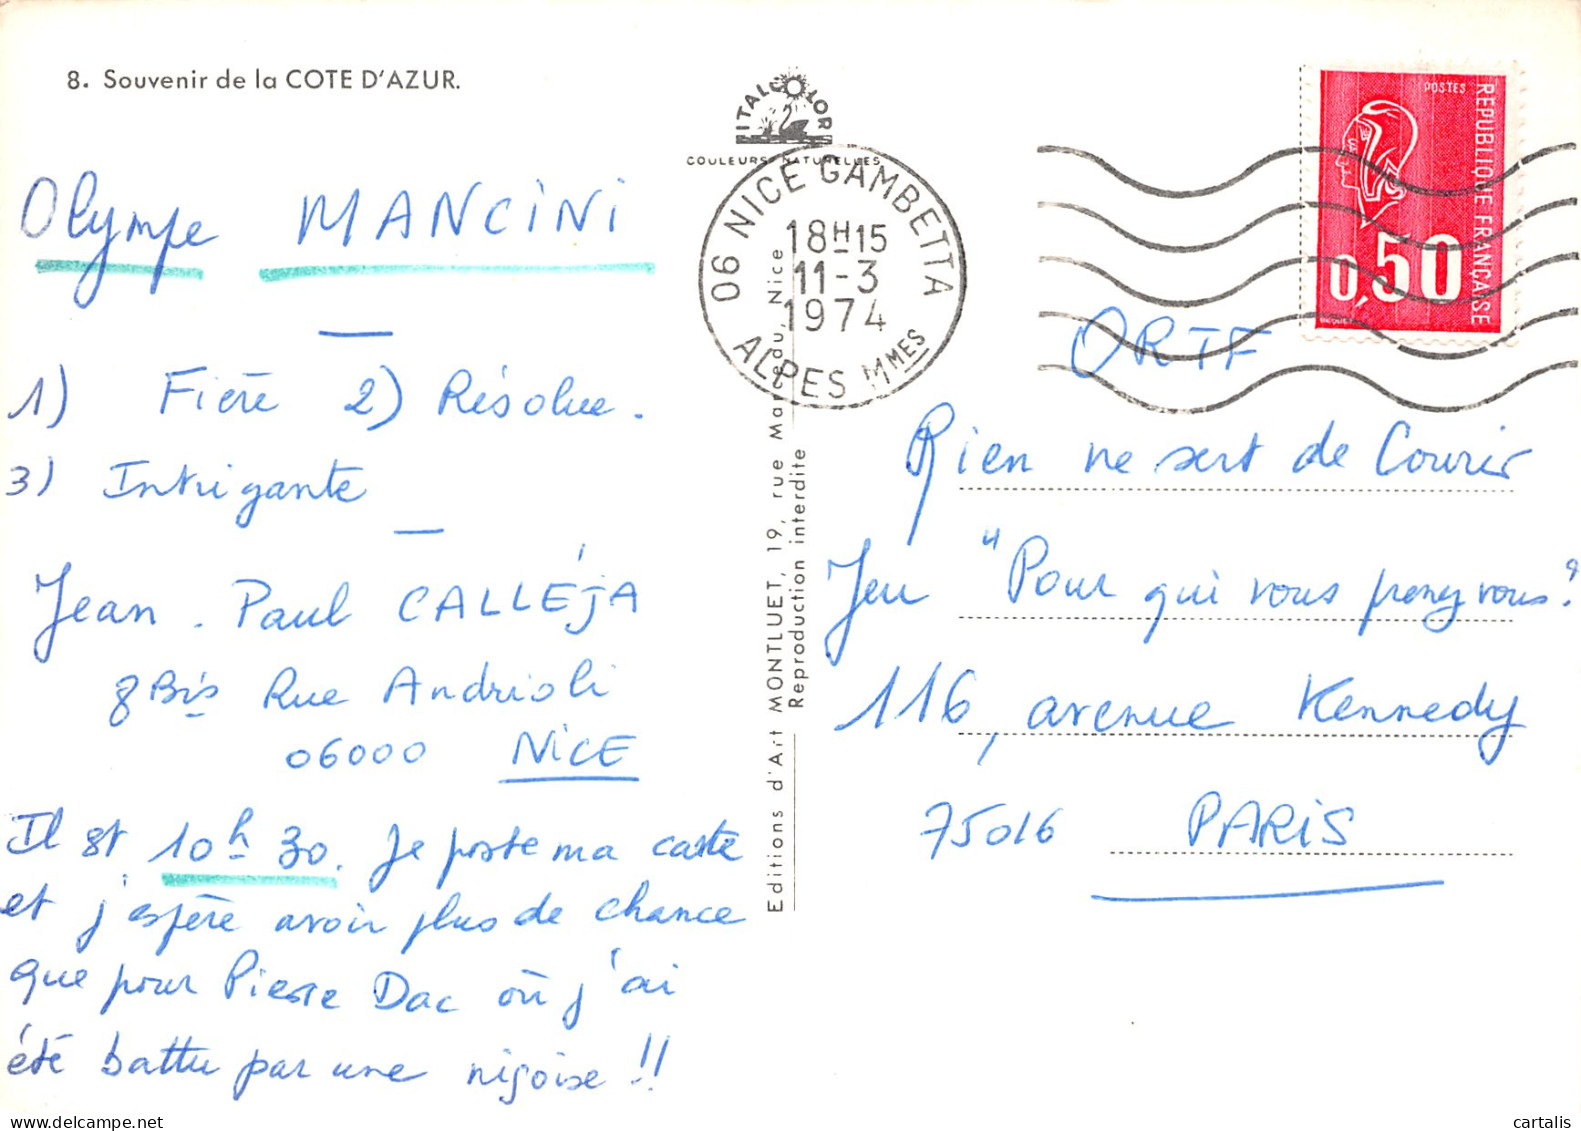 8. Souvenir de la COTE D'AZUR.
ITALCOLOR
COULEURS NATURELLES
06 NICE GAMBETTA
18H15
11-3
1974
ALPES MMES
POSTES
REPUBLIQUE FRANÇAISE
0,50
Olympe MANCINI
1) Fière 2) Résolue.
3) Intrigante
Jean-Paul CALLÉJA
8 Bis Rue Andrioli
06000 NICE
Il est 10h30. Je poste ma carte
et j'espère avoir plus de chance
que pour Pierre Dac où j'ai
été battu par une niçoise !!
Editions d'Art MONTLUET, 19, rue du, Nice
Reproduction interdite
ORTF
Rien ne sert de Courir
Jeu "Pour qui vous prenez vous?
116, avenue Kennedy
75016 PARIS
cartalis
delcampe.net